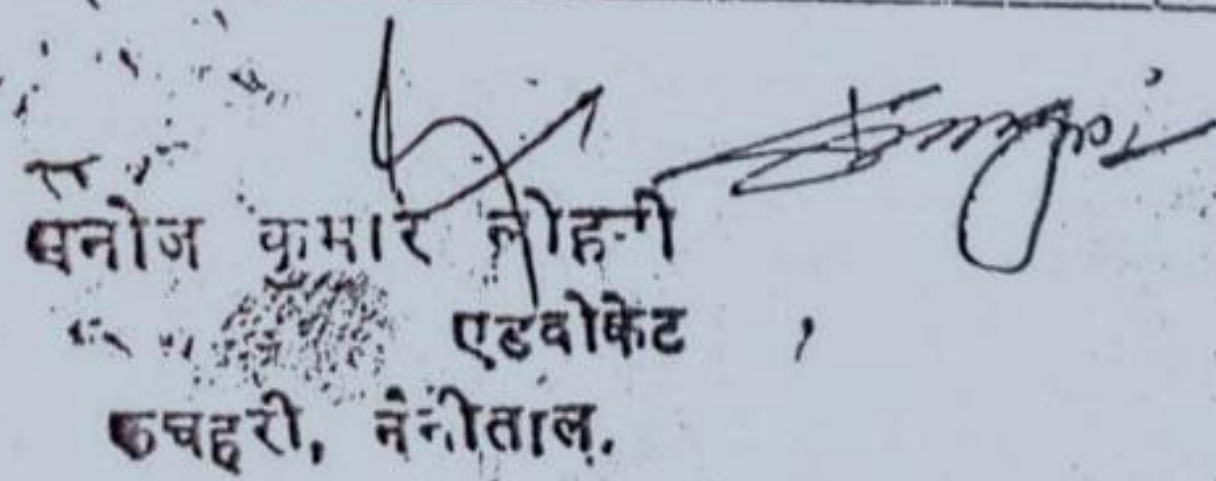 मनोज कुमार लोहनी
एडवोकेट
कचहरी, नैनीताल.